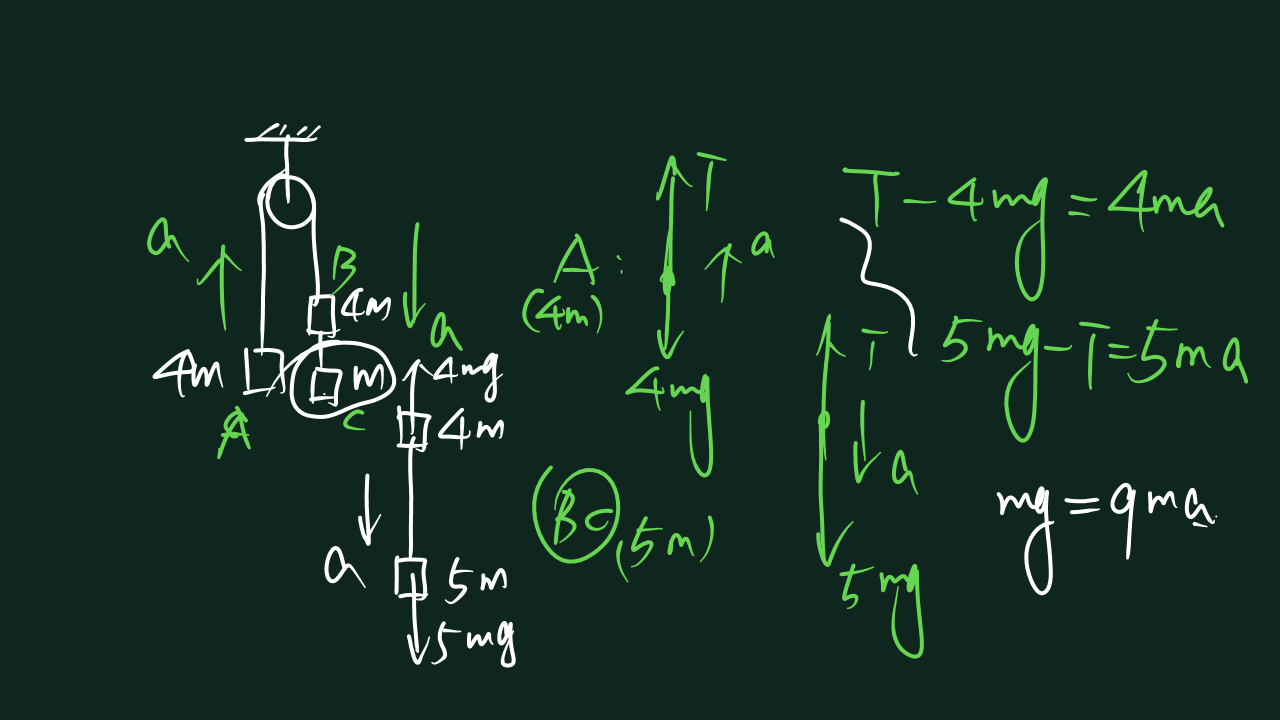 a
B
4m
a
4m
m
A
C
4mg
4m
a
5m
5mg
A:
(4m)
T
a
4mg
BC (5m)
T
a
5mg
T-4mg=4ma
5mg-T=5ma
mg=9ma